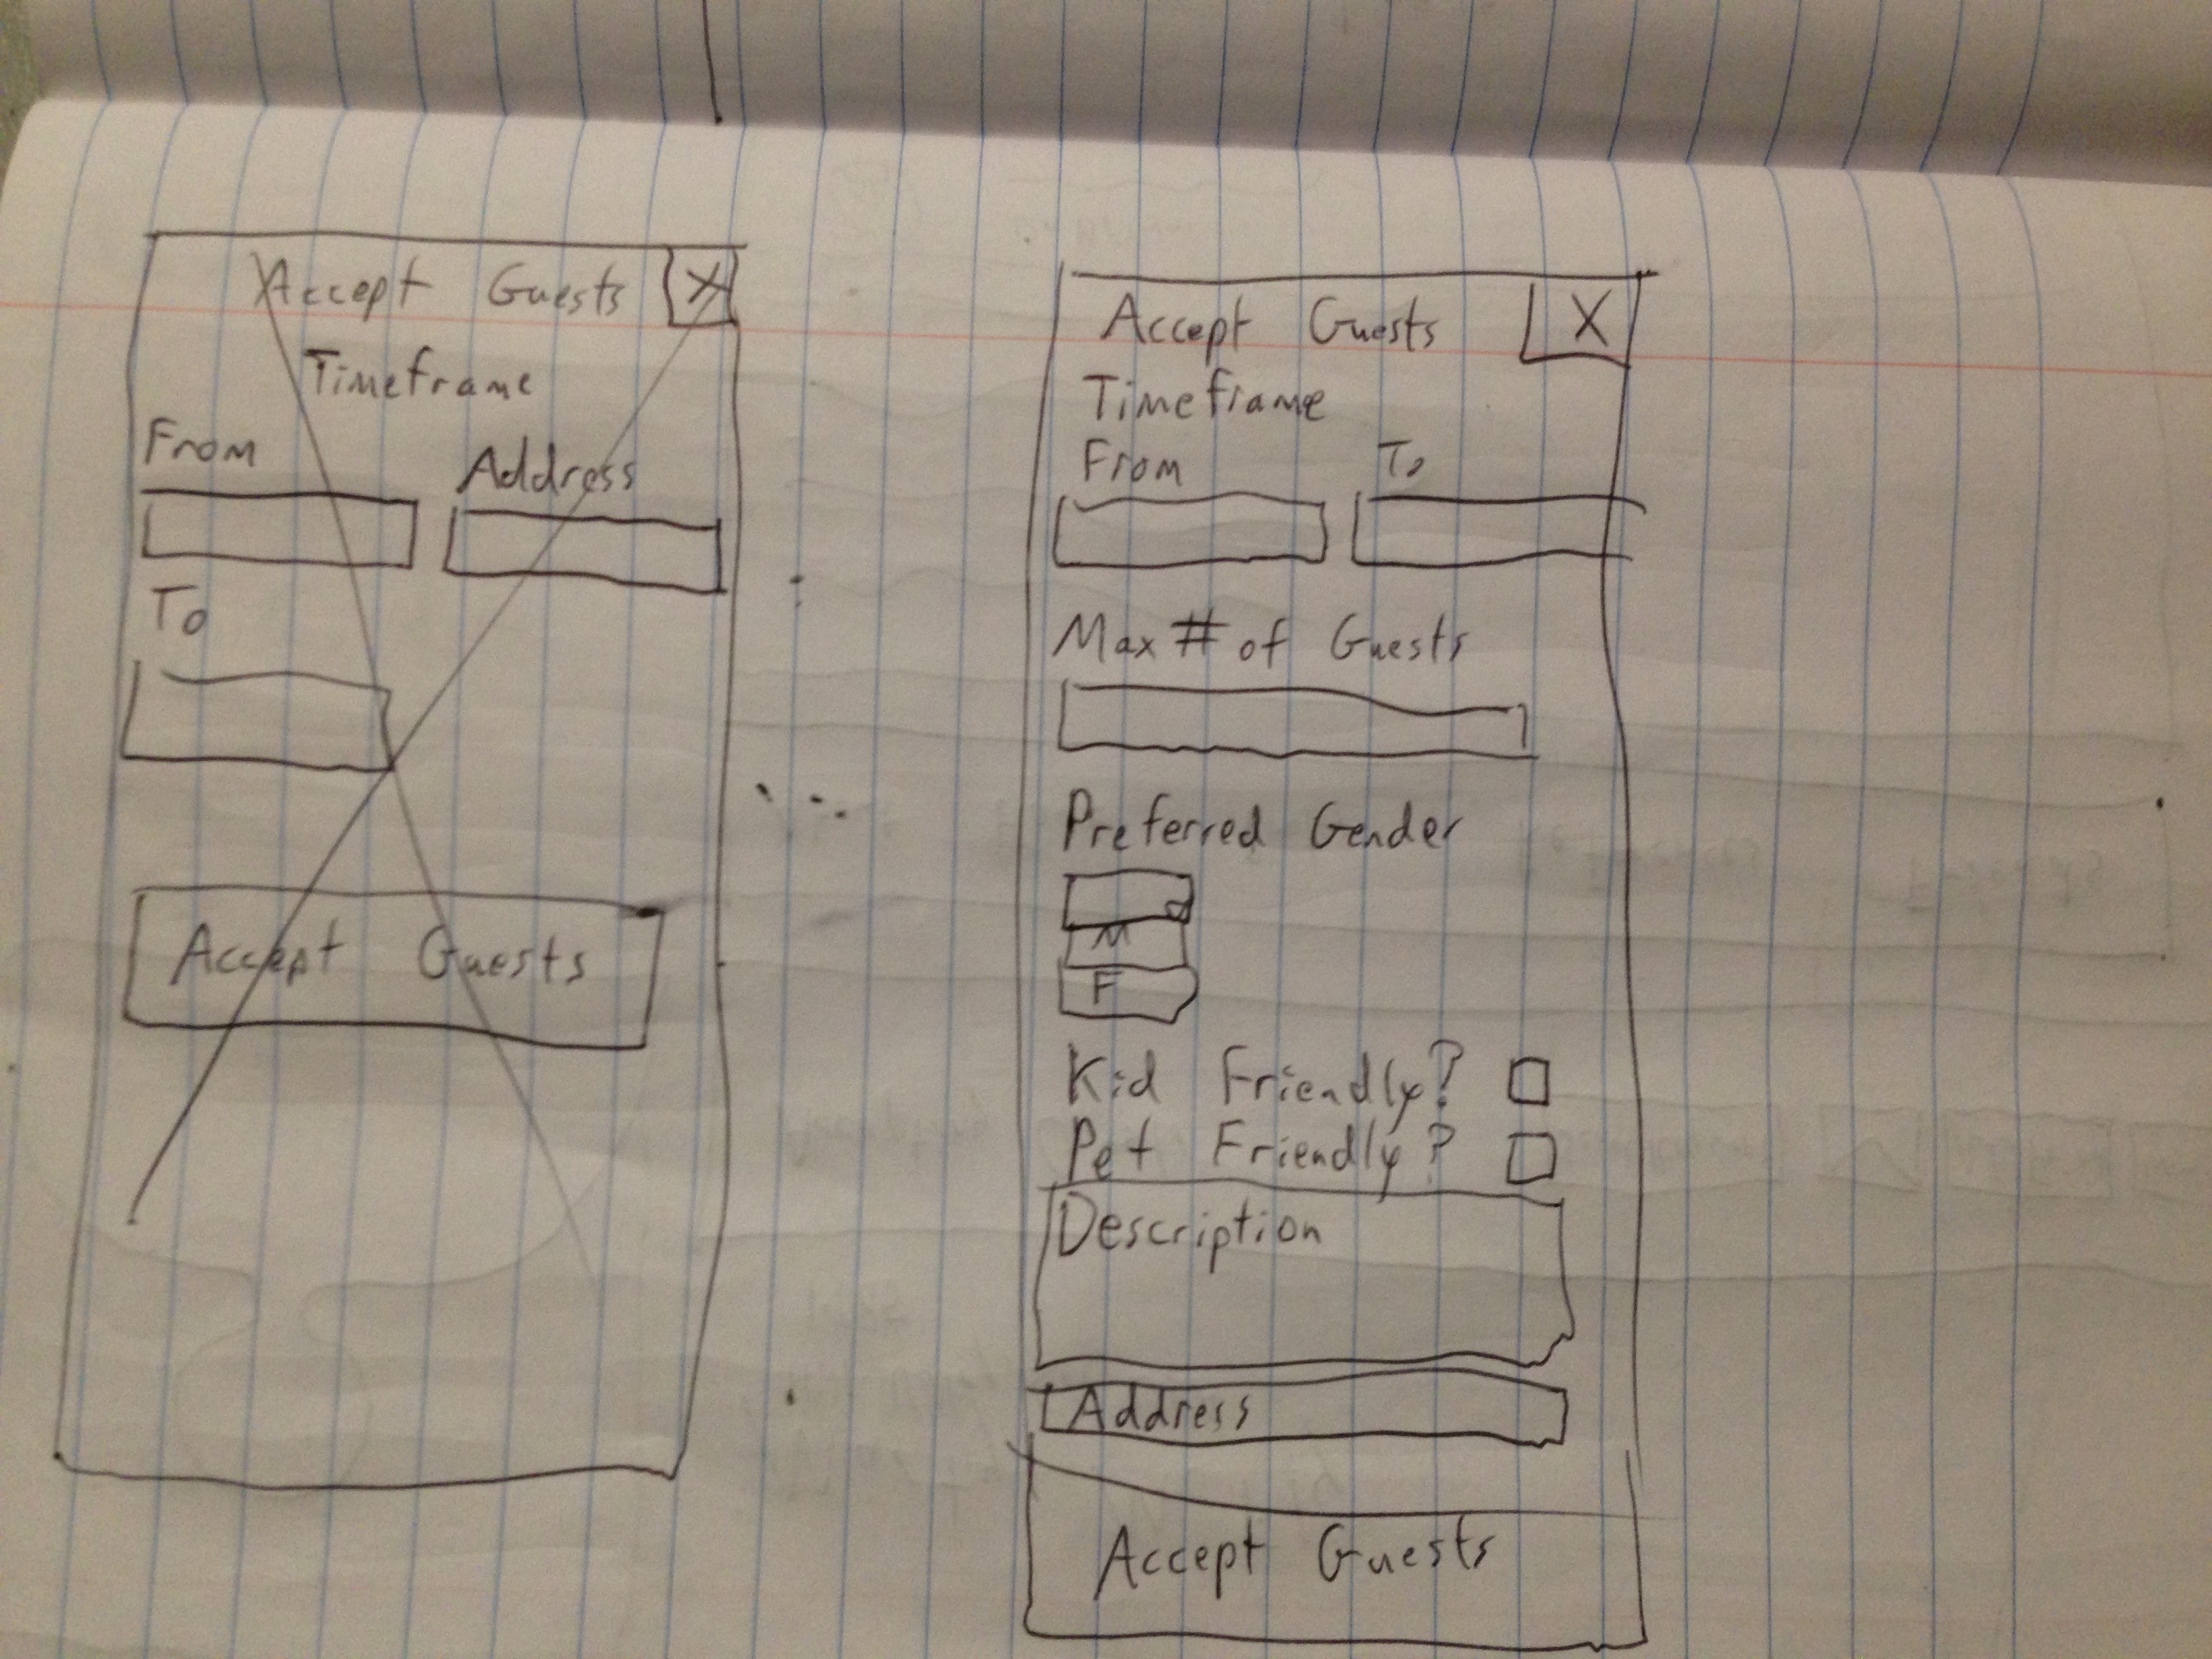 Accept Guests X
Timeframe
From
Address
To
Accept Guests
Accept Guests X
Timeframe
From To
Max # of Guests
Preferred Gender
M
F
Kid Friendly?
Pet Friendly?
Description
Address
Accept Guests